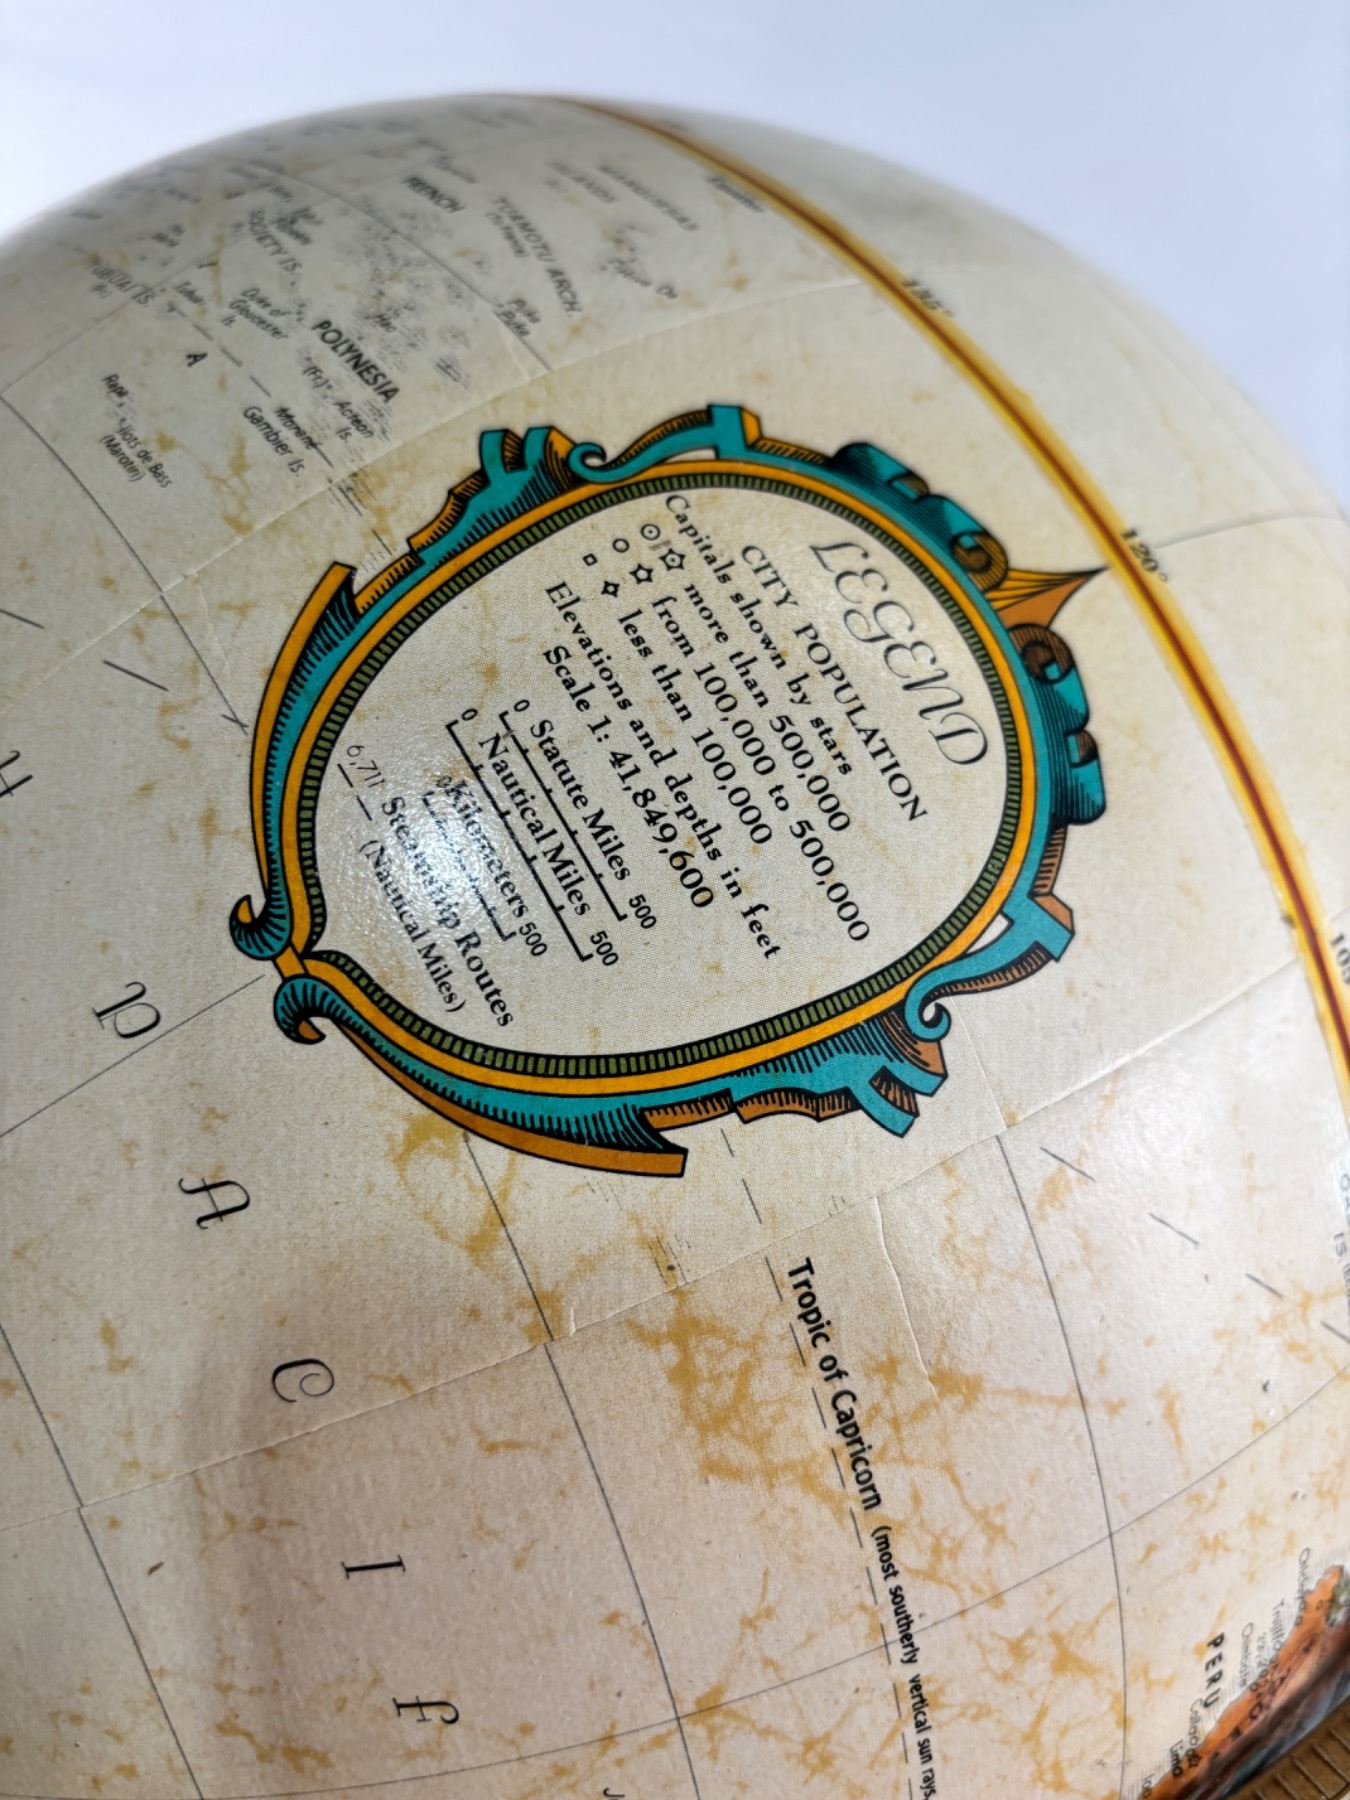 LEGEND
CITY POPULATION
Capitals shown by stars
more than 500,000
from 100,000 to 500,000
less than 100,000
Elevations and depths in feet
Scale 1: 41,849,600
0 Statute Miles 500
0 Nautical Miles 500
0 Kilometers 500
6,711 Steamship Routes
(Nautical Miles)
135°
120°
105°
Equator
MARQUESAS
ISLANDS
TUAMOTU ARCH.
(To France)
FRENCH
POLYNESIA
(Fr.)
SOCIETY IS.
Puka
Puka
Hao
Duke of
Gloucester
Is.
Acteon
Is.
Morane
Gambier Is.
Rapa
Ilots de Bass
(Marotiri)
A
P A C I F
Tropic of Capricorn (most southerly vertical sun rays,
PERU
Lima